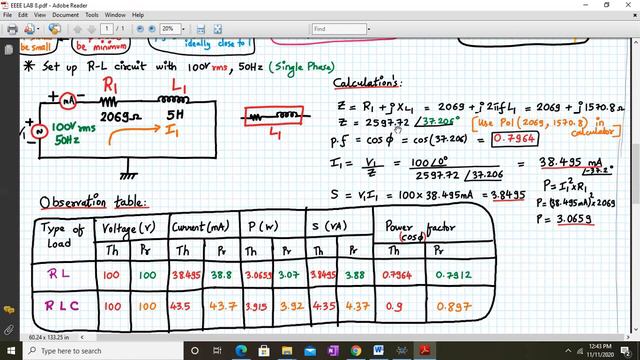 EEEE LAB 5.pdf - Adobe Reader
File Edit View Window Help
1 / 1
20%
Tools Fill & Sign Comment
be small be minimum ideally close to 1
* Set up R-L circuit with 100V rms, 50Hz (Single Phase)
R1 L1
mA
2069Ω 5H
V1
100V rms
50Hz
I1
L1
Calculation's:
Z = R1 + j XL1 = 2069 + j 2πf L1 = 2069 + j 1570.8 Ω
Z = 2597.72 ∠37.206° [Use Pol (2069, 1570.8) in calculator]
p.f = cosϕ = cos(37.206) = 0.7964
I1 = V1/Z = 100∠0°/2597.72 ∠37.206 = 38.495 mA ∠-37.2°
S = V1I1 = 100 × 38.495mA = 3.8495
P = I1² × R1
P = (38.495mA)² × 2069
P = 3.0659
Observation table:
Type of Load Voltage (V) Current (mA) P (W) S (VA) Power factor (cosϕ)
Th Pr Th Pr Th Pr Th Pr Th Pr
RL 100 100 38.495 38.8 3.0659 3.07 3.8495 3.88 0.7964 0.7912
RLC 100 100 43.5 43.7 3.915 3.92 4.35 4.37 0.9 0.897
60.24 x 133.25 in
Type here to search
12:43 PM
11/11/2020